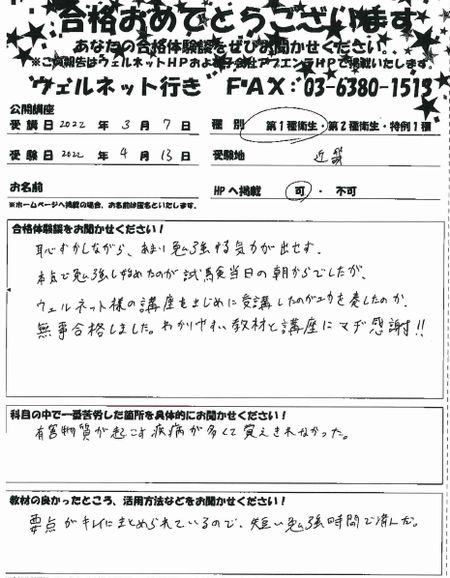 合格おめでとうございます
あなたの合格体験談をぜひお聞かせください。
※ご報告はウェルネットHPおよび子会社アブエンテHPで掲載いたします。
ウェルネット行き FAX：03-6380-1513
公開講座
受講日 2022 年 3 月 7 日 種別 第1種衛生・第2種衛生・特例1種
受験日 2022 年 4 月 13 日 受験地 近畿
お名前 HPへ掲載 可・不可
※ホームページへ掲載の場合、お名前は匿名といたします。
合格体験談をお聞かせください！
恥ずかしながら、あまり勉強する気力が出せず、
本気で勉強し始めたのが試験当日の朝からでしたが、
ウェルネット様の講座をまじめに受講したのが功を奏したのか、
無事合格しました。わかりやすい教材と講座にマヂ感謝!!
科目の中で一番苦労した箇所を具体的にお聞かせください！
有害物質が起こす疾病が多くて覚えきれなかった。
教材の良かったところ、活用方法などをお聞かせください！
要点がキレイにまとめられているので、短い勉強時間で済んだ。